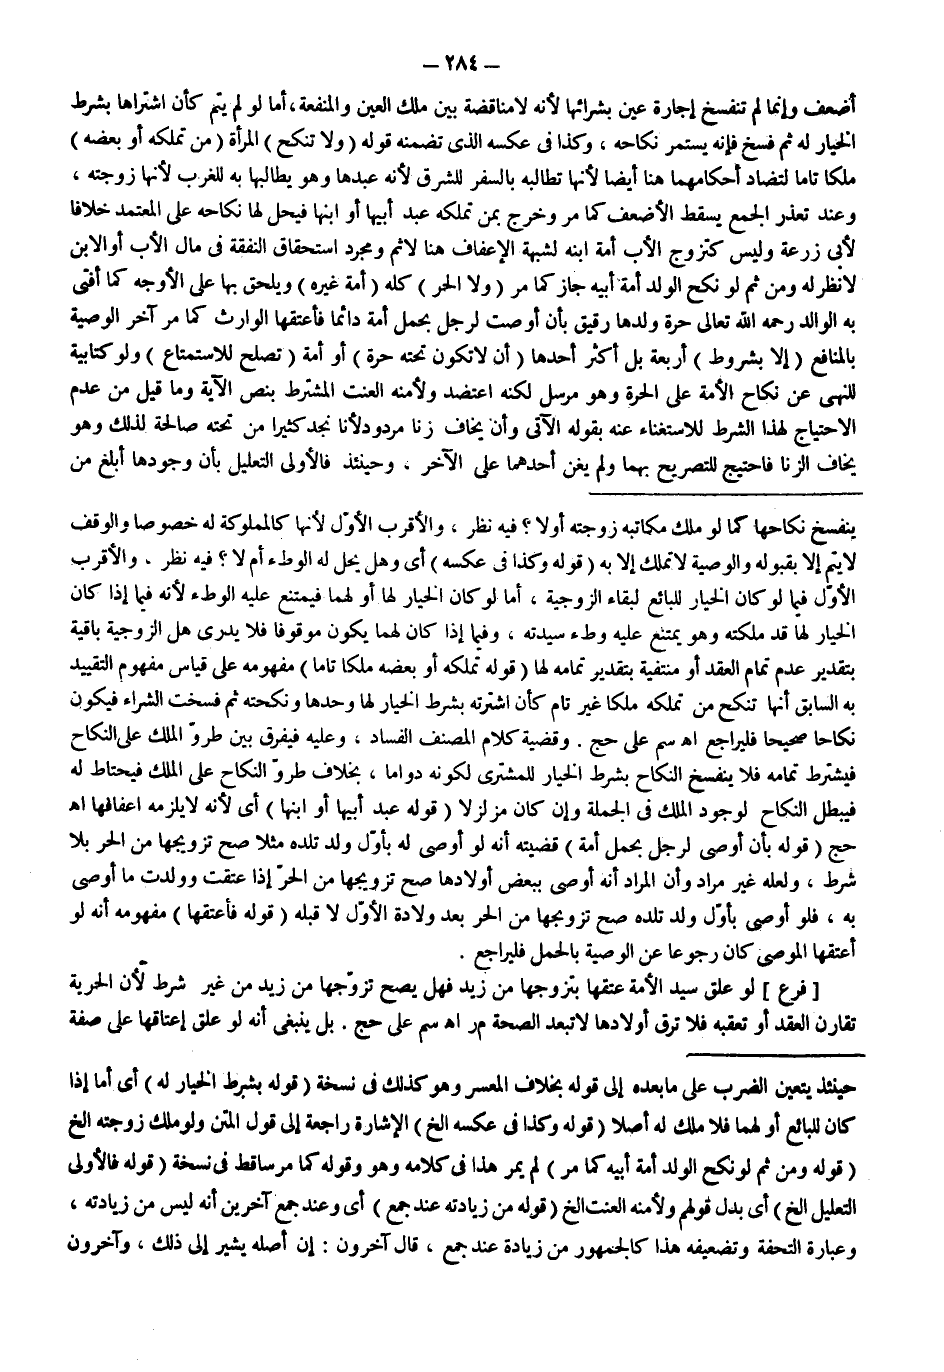 – ٢٨٤ –
أضعف وإنما لم تنفسخ إجارة عين بشرائها لأنه لامناقضة بين ملك العين والمنفعة، أما لو لم يتم كأن اشتراها بشرط
الخيار له ثم فسخ فإنه يستمر نكاحه ، وكذا فى عكسه الذى تضمنه قوله ( ولا تنكح ) المرأة ( من تملكه أو بعضه )
ملكا تاما لتضاد أحكامهما هنا أيضا لأنها تطالبه بالسفر للشرق لأنه عبدها وهو يطالبها به للغرب لأنها زوجته ،
وعند تعذر الجمع يسقط الأضعف كما مر وخرج بمن تملكه عبد أبيها أو ابنها فيحل لها نكاحه على المعتمد خلافا
لأبى زرعة وليس كتزوج الأب أمة ابنه لشبهة الإعفاف هنا لاثم ومجرد استحقاق النفقة فى مال الأب أو الابن
لانظر له ومن ثم لو نكح الولد أمة أبيه جاز كما مر ( ولا الحر ) كله ( أمة غيره ) ويلحق بها على الأوجه كما أفتى
به الوالد رحمه الله تعالى حرة ولدها رقيق بأن أوصت لرجل بحمل أمة دائما فأعتقها الوارث كما مر آخر الوصية
بالمنافع ( إلا بشروط ) أربعة بل أكثر أحدها ( أن لاتكون تحته حرة ) أو أمة ( تصلح للاستمتاع ) ولو كتابية
للنهى عن نكاح الأمة على الحرة وهو مرسل لكنه اعتضد ولأمنه العنت المشترط بنص الآية وما قيل من عدم
الاحتياج لهذا الشرط للاستغناء عنه بقوله الآتى وأن يخاف زنا مردود لأنا نجد كثيرا من تحته صالحة لذلك وهو
يخاف الزنا فاحتيج للتصريح بهما ولم يغن أحدهما على الآخر ، وحينئذ فالأولى التعليل بأن وجودها أبلغ من
ينفسخ نكاحها كما لو ملك مكاتبه زوجته أولا ؟ فيه نظر ، والأقرب الأوّل لأنها كالمملوكة له خصوصا والوقف
لايتم إلا بقبوله والوصية لاتملك إلا به ( قوله وكذا فى عكسه ) أى وهل يحل له الوطء أم لا ؟ فيه نظر . والأقرب
الأوّل فيما لو كان الخيار للبائع لبقاء الزوجية ، أما لو كان الخيار لها أو لهما فيمتنع عليه الوطء لأنه فيما إذا كان
الخيار لها قد ملكته وهو يمتنع عليه وطء سيدته ، وفيما إذا كان لهما يكون موقوفا فلا يدرى هل الزوجية باقية
بتقدير عدم تمام العقد أو منتفية بتقدير تمامه لها ( قوله تملكه أو بعضه ملكا تاما ) مفهومه على قياس مفهوم التقييد
به السابق أنها تنكح من تملكه ملكا غير تام كأن اشترته بشرط الخيار لها وحدها ونكحته ثم فسخت الشراء فيكون
نكاحا صحيحا فليراجع اه سم على حج . وقضية كلام المصنف الفساد ، وعليه فيفرق بين طروّ الملك على النكاح
فيشترط تمامه فلا ينفسخ النكاح بشرط الخيار للمشترى لكونه دواما ، بخلاف طروّ النكاح على الملك فيحتاط له
فيبطل النكاح لوجود الملك فى الجملة وإن كان مزلزلا ( قوله عبد أبيها أو ابنها ) أى لأنه لايلزمه اعفافها اه
حج ( قوله بأن أوصى لرجل بحمل أمة ) قضيته أنه لو أوصى له بأوّل ولد تلده مثلا صح تزويجها من الحر بلا
شرط ، ولعله غير مراد وأن المراد أنه أوصى ببعض أولادها صح تزويجها من الحرّ إذا عتقت وولدت ما أوصى
به ، فلو أوصى بأوّل ولد تلده صح تزويجها من الحر بعد ولادة الأوّل لا قبله ( قوله فأعتقها ) مفهومه أنه لو
أعتقها الموصى كان رجوعا عن الوصية بالحمل فليراجع .
[ فرع ] لو علق سيد الأمة عتقها بتزوجها من زيد فهل يصح تزوّجها من زيد من غير شرط لأن الحرية
تقارن العقد أو تعقبه فلا ترق أولادها لاتبعد الصحة م ر اه سم على حج . بل ينبغى أنه لو علق إعتاقها على صفة
حينئذ يتعين الضرب على مابعده إلى قوله بخلاف المعسر وهو كذلك فى نسخة ( قوله بشرط الخيار له ) أى أما إذا
كان للبائع أو لهما فلا ملك له أصلا ( قوله وكذا فى عكسه الخ ) الإشارة راجعة إلى قول المتن ولو ملك زوجته الخ
( قوله ومن ثم لو نكح الولد أمة أبيه كما مر ) لم يمر هذا فى كلامه وهو وقوله كما مر ساقط فى نسخة ( قوله فالأولى
التعليل الخ ) أى بدل قولهم ولأمنه العنت الخ ( قوله من زيادته عند جمع ) أى وعند جمع آخرين أنه ليس من زيادته ،
وعبارة التحفة وتضعيفه هذا كالجمهور من زيادة عند جمع ، قال آخرون : إن أصله يشير إلى ذلك ، وآخرون